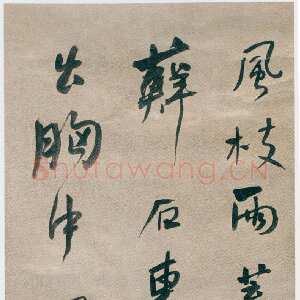 風枝雨葉
蘚石東
出胸中
Shufawang.CN